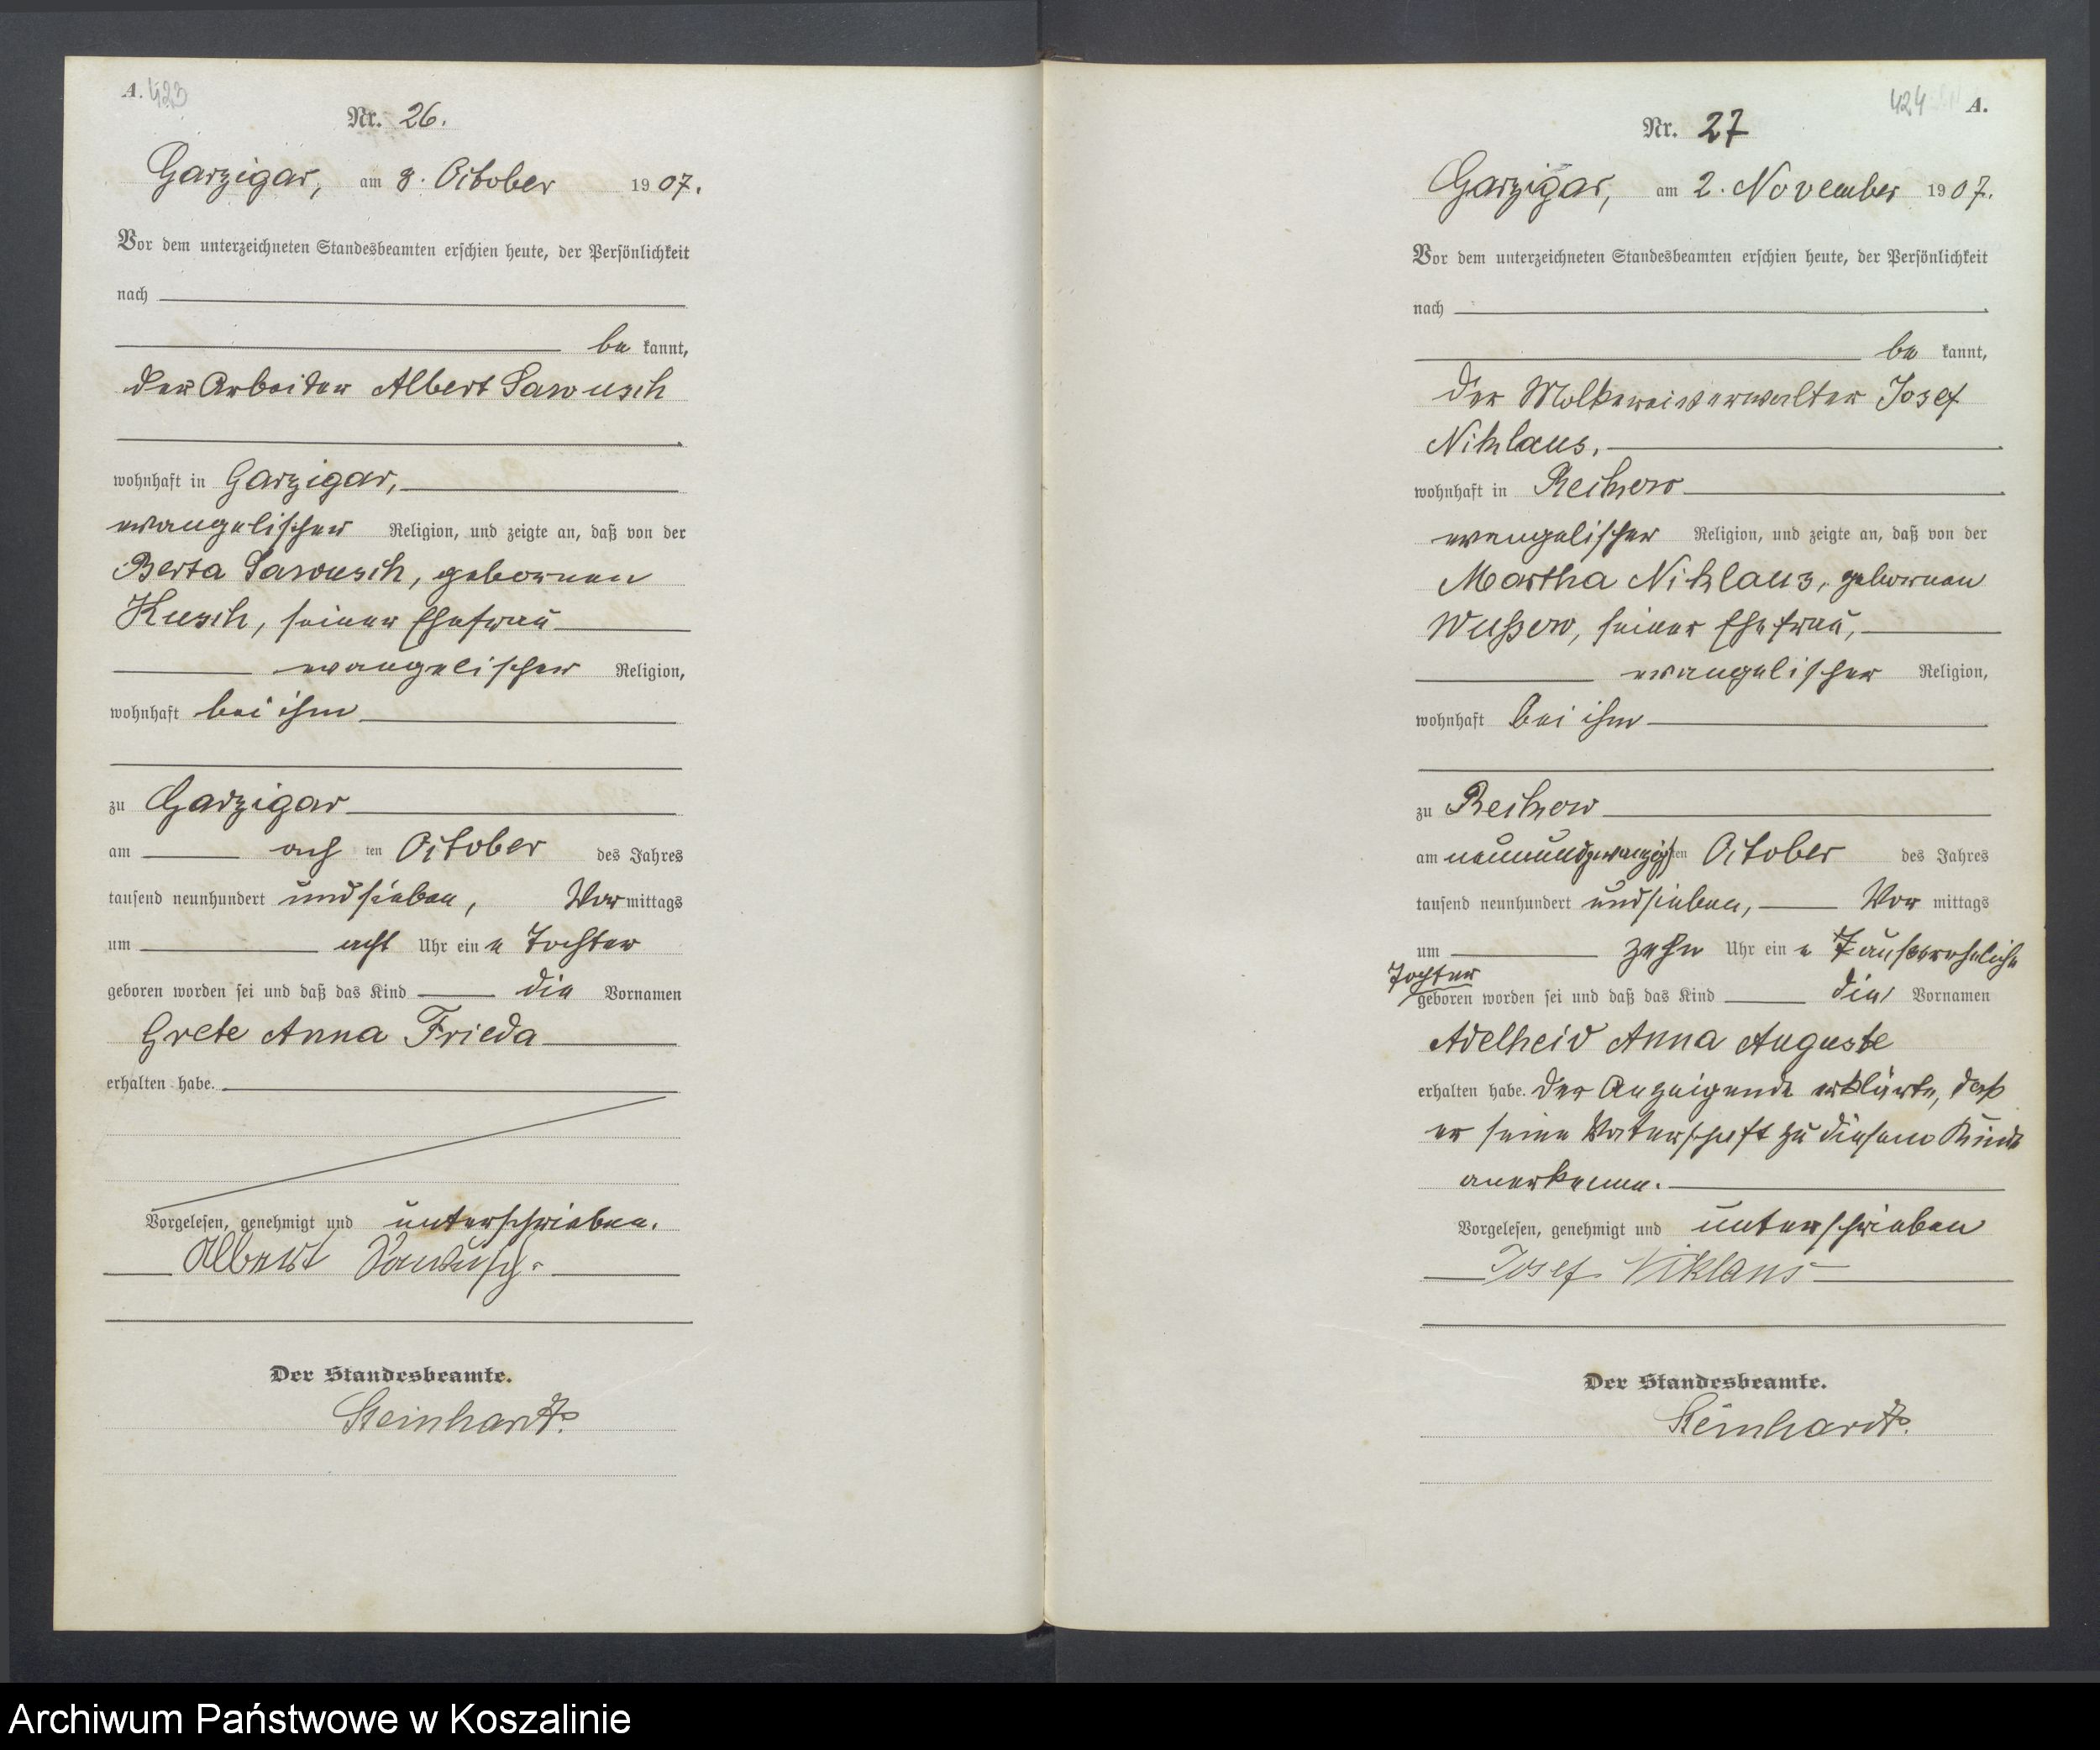 A. 423
Nr. 26.
Garzigar, am 8. October 1907.
Vor dem unterzeichneten Standesbeamten erschien heute, der Persönlichkeit
nach
be kannt,
der Arbeiter Albert Sawusch
wohnhaft in Garzigar,
evangelischer Religion, und zeigte an, daß von der
Berta Sawusch, geborenen
Kusch, seiner Ehefrau
evangelischer Religion,
wohnhaft bei ihm
zu Garzigar
am ach ten October des Jahres
tausend neunhundert und sieben, Vor mittags
um acht Uhr ein e Tochter
geboren worden sei und daß das Kind die Vornamen
Grete Anna Frieda
erhalten habe.
Vorgelesen, genehmigt und unterschrieben.
Albert Sawusch.
Der Standesbeamte.
Steinhardt.
424 A.
Nr. 27
Garzigar, am 2. November 1907.
Vor dem unterzeichneten Standesbeamten erschien heute, der Persönlichkeit
nach
be kannt,
der Molkereiverwalter Josef
Niklaus,
wohnhaft in Reckow
evangelischer Religion, und zeigte an, daß von der
Martha Niklaus, geborenen
Wußow, seiner Ehefrau,
evangelischer Religion,
wohnhaft bei ihm
zu Reckow
am neunundzwanzigsten October des Jahres
tausend neunhundert und sieben, Vor mittags
um zehn Uhr ein e außereheliche
Tochter
geboren worden sei und daß das Kind die Vornamen
Adelheid Anna Auguste
erhalten habe. Der Anzeigende erklärte, daß
er seine Vaterschaft zu diesem Kinde
anerkenne.
Vorgelesen, genehmigt und unterschrieben
Josef Niklaus
Der Standesbeamte.
Steinhardt.
Archiwum Państwowe w Koszalinie